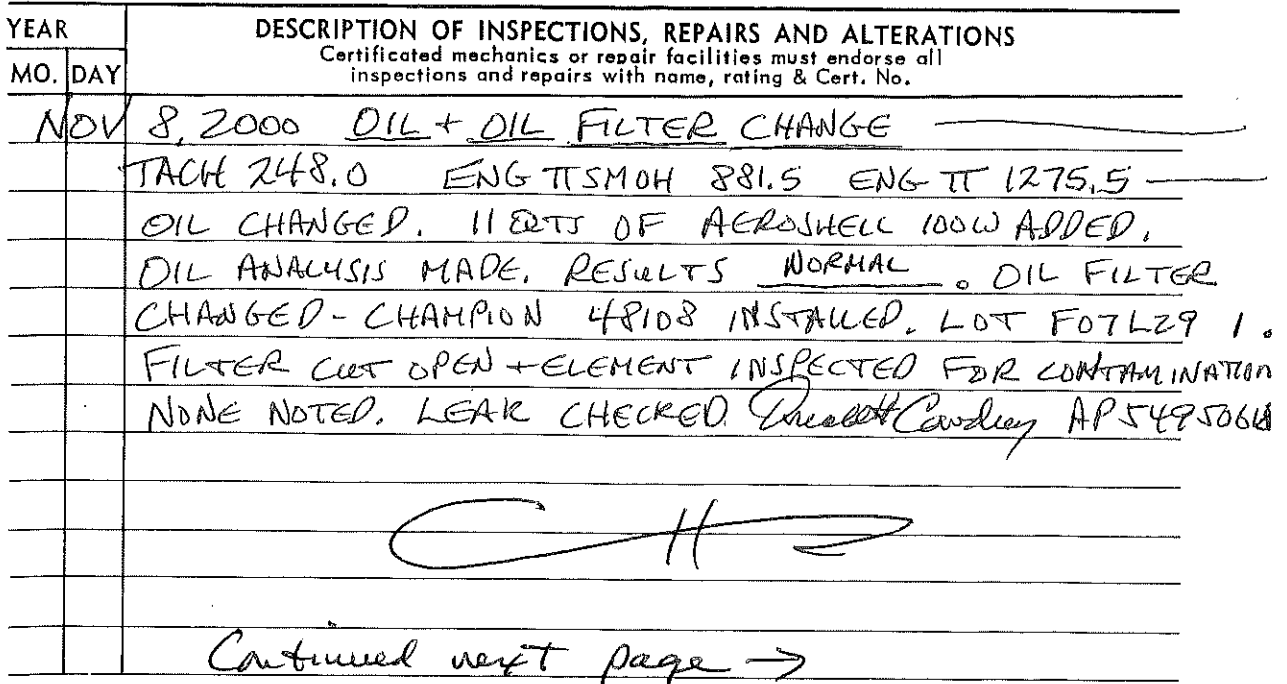 YEAR DESCRIPTION OF INSPECTIONS, REPAIRS AND ALTERATIONS
Certificated mechanics or repair facilities must endorse all
MO. DAY inspections and repairs with name, rating & Cert. No.
NOV 8, 2000 OIL + OIL FILTER CHANGE
TACH 248.0 ENG TTSMOH 881.5 ENG TT 1275.5
OIL CHANGED. 11 QTS OF AEROSHELL 100W ADDED.
OIL ANALYSIS MADE. RESULTS NORMAL. OIL FILTER
CHANGED - CHAMPION 48108 INSTALLED. LOT F07L29 1.
FILTER CUT OPEN + ELEMENT INSPECTED FOR CONTAMINATION
NONE NOTED. LEAK CHECKED. AP
Continued next page →